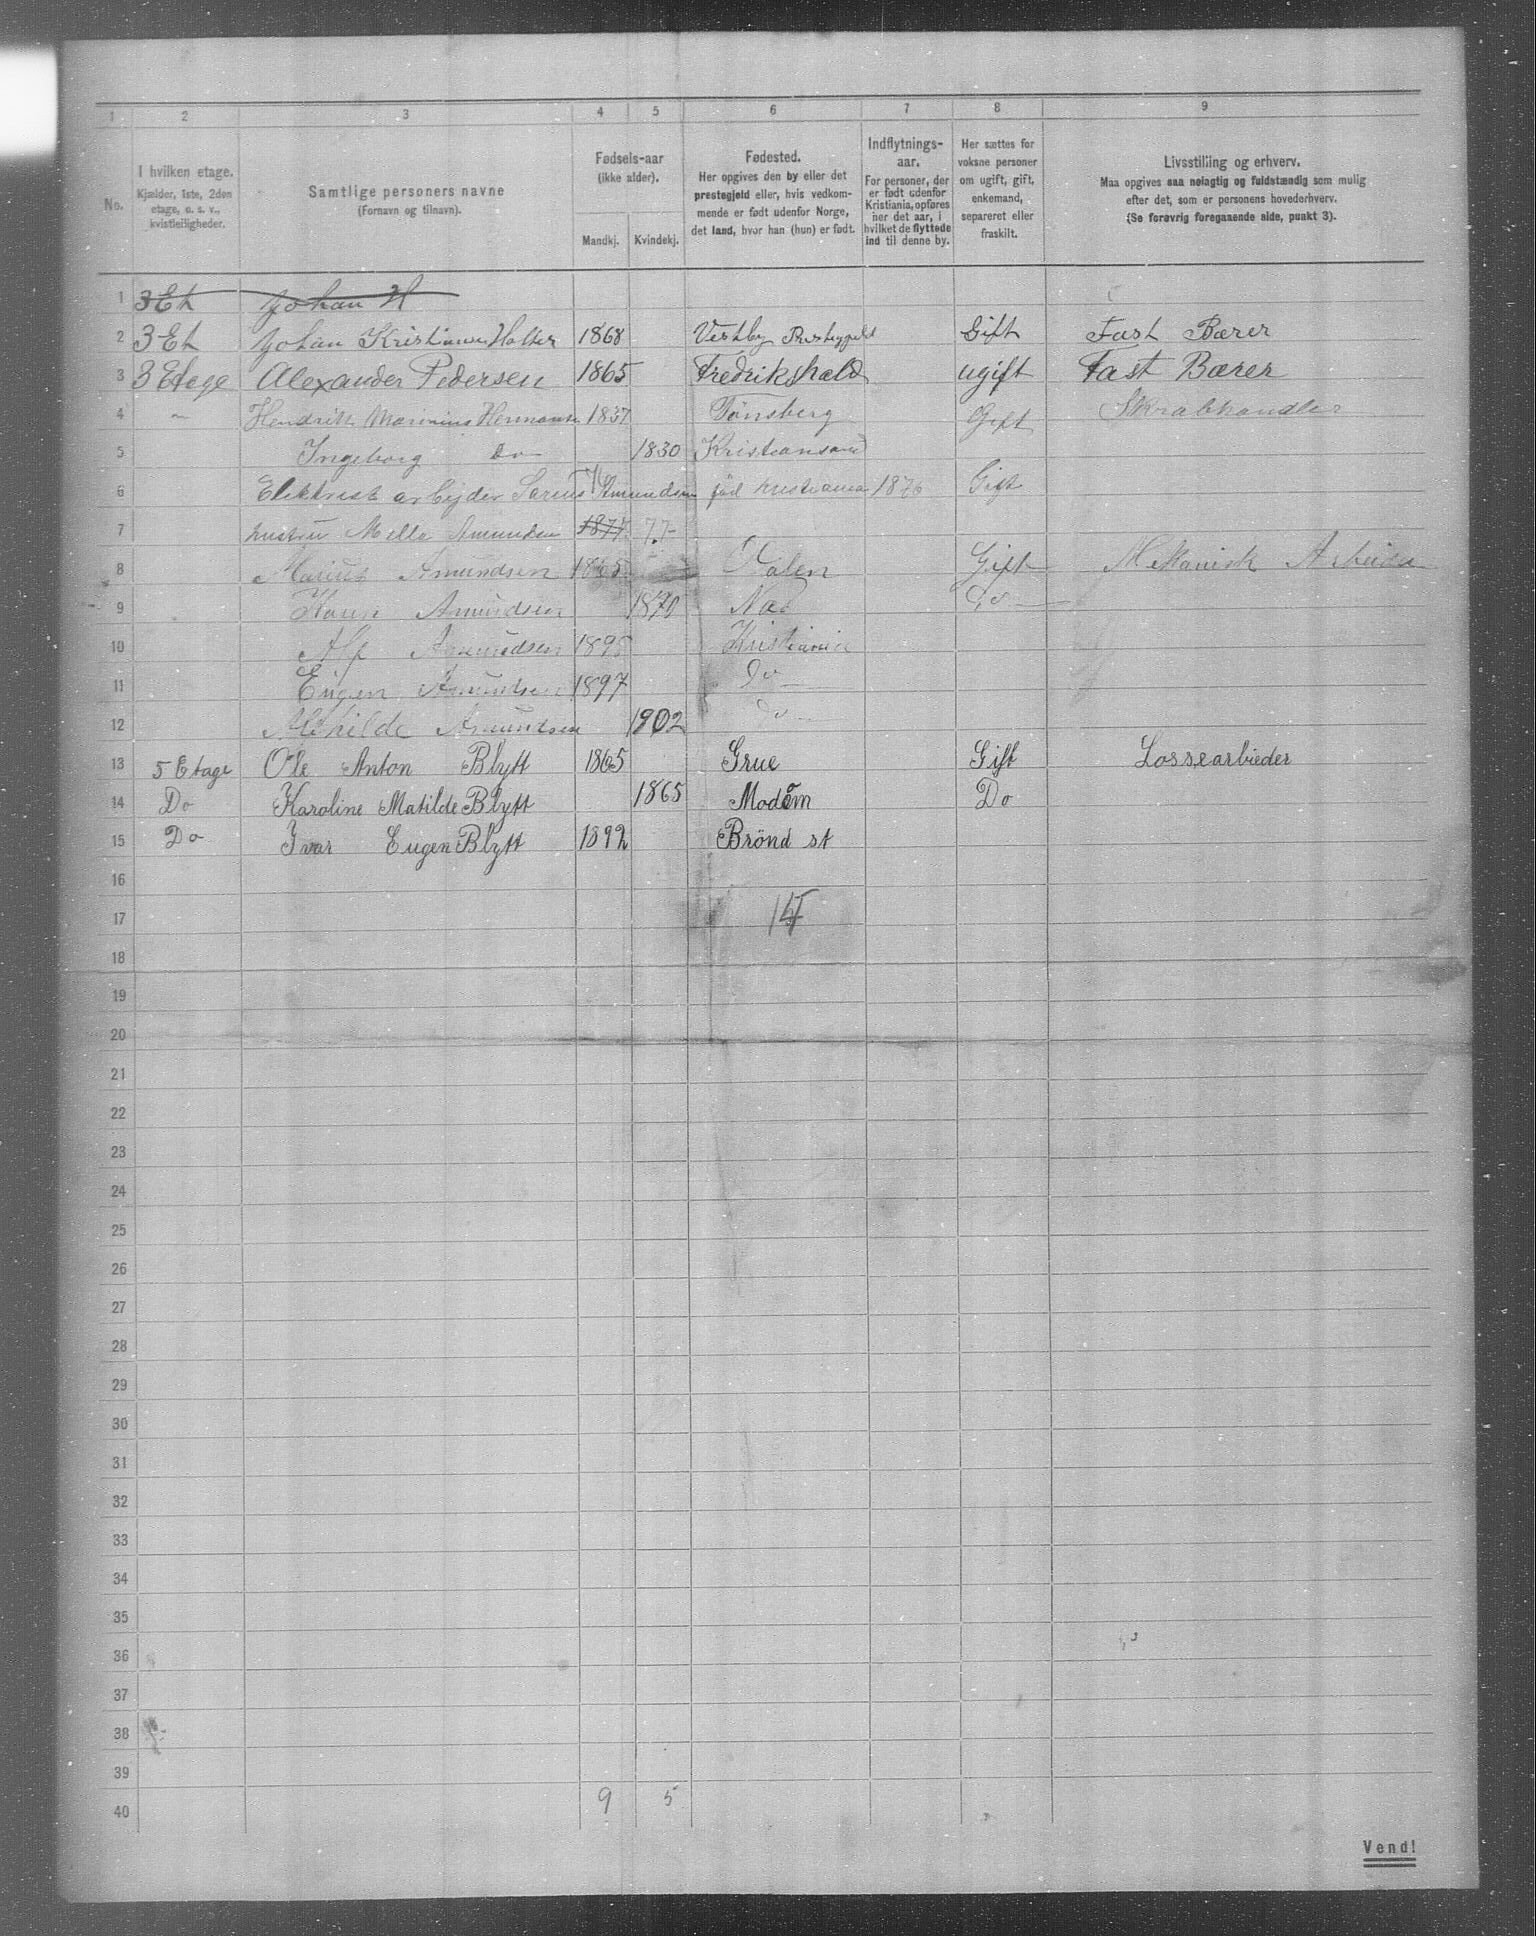 1 2 3 4 5 6 7 8 9
No.
I hvilken etage.
Kjælder, 1ste, 2den
etage, o. s. v.,
kvistleiligheder.
Samtlige personers navne
(Fornavn og tilnavn).
Fødsels-aar
(ikke alder).
Mandkj. Kvindekj.
Fødested.
Her opgives den by eller det
prestegjeld eller, hvis vedkom-
mende er født udenfor Norge,
det land, hvor han (hun) er født.
Indflytnings-
aar.
For personer, der
er født udenfor
Kristiania, opføres
her det aar, i
hvilket de flyttede
ind til denne by.
Her sættes for
voksne personer
om ugift, gift,
enkemand,
separeret eller
fraskilt.
Livsstilling og erhverv.
Maa opgives saa nøiagtig og fuldstændig som mulig
efter det, som er personens hovederhverv.
(Se forøvrig foregaaende side, punkt 3).
1 3 Et Johan H
2 3 Et Johan Kristiansen Holter 1868 Vestby Gift Fast Bærer
3 3 Etage Alexander Pedersen 1865 Fredrikshald ugift Fast Bærer
4 " Hendrik Marinius Hermansen 1837 Tönsberg Gift Skrabhandler
5 Ingeborg Do 1830 Kristiansand
6 Elektrisk arbejder Amundsen född Kristiania 1876 Gift
7 hustru Mella Amundsen 1877 77
8 Marius Amundsen 1865 Gift Mekanisk Arbeider
9 Amundsen 1870 Næs Do
10 Alf Amundsen 1895 Kristiania
11 Eugen Amundsen 1897 Do
12 Amundsen 1902 Do
13 5 Etage Ole Anton Blytt 1865 Grue Gift Lossearbieder
14 Do Karoline Matilde Blytt 1865 Modöm Do
15 Do Ivar Eugen Blytt 1892 Brönd st
16
17 14
18
19
20
21
22
23
24
25
26
27
28
29
30
31
32
33
34
35
36
37
38
39
40 9 5
Vend!